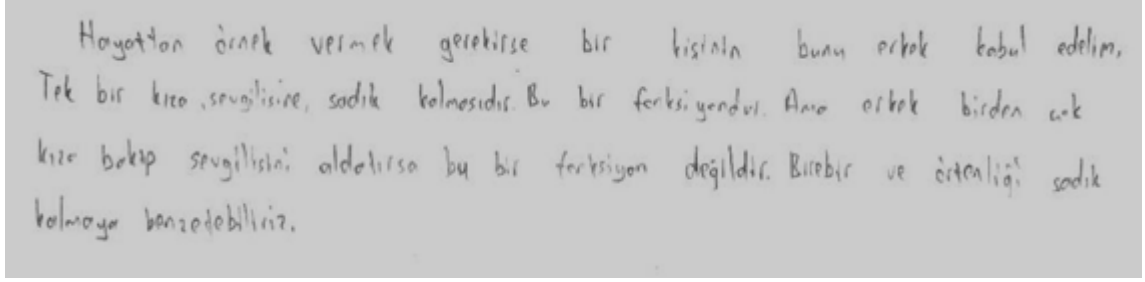 Hayattan örnek vermek gerekirse bir kişinin bunu erkek kabul edelim,
Tek bir kıza, sevgilisine, sadık kalmasıdır. Bu bir fonksiyondur. Ama erkek birden çok
kıza bakıp sevgilisini aldatırsa bu bir fonksiyon değildir. Birebir ve örtenliği sadık
kalmaya benzetebiliriz.